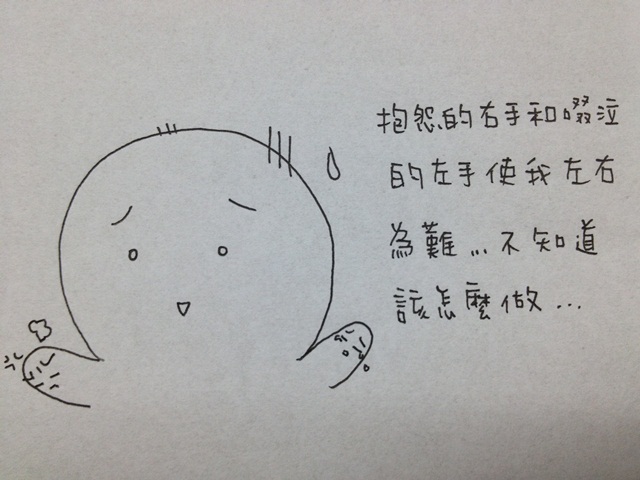 抱怨的右手和啜泣
的左手使我左右
為難...不知道
該怎麼做...